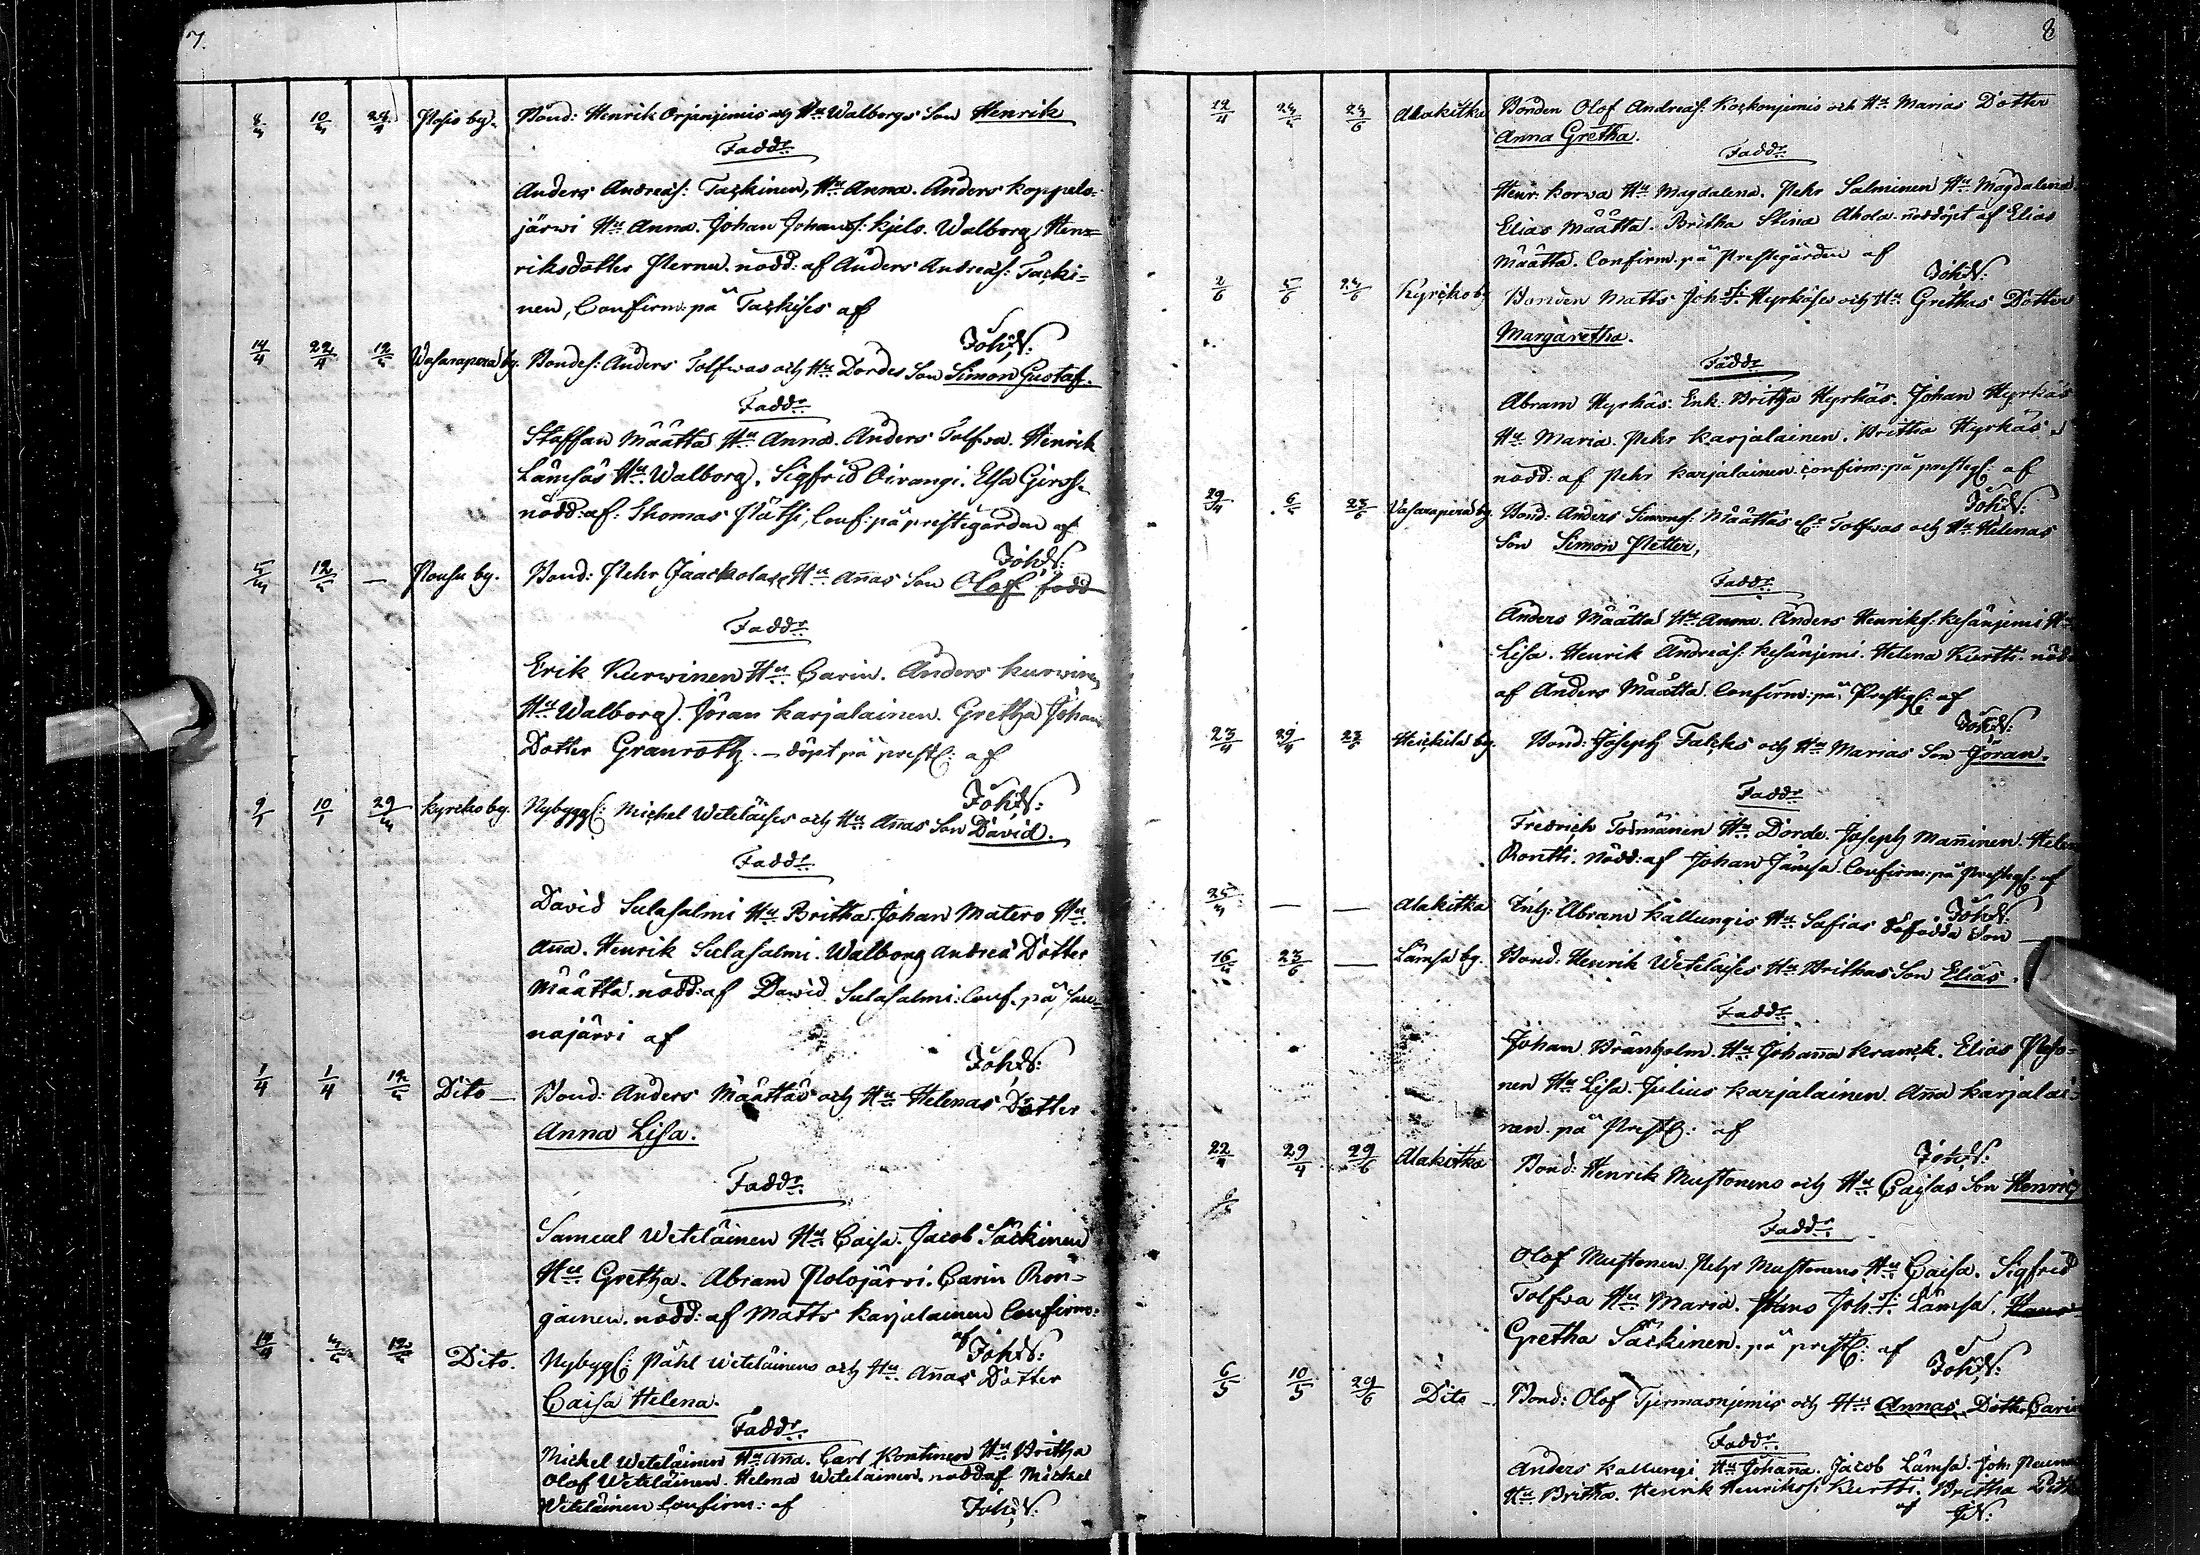 7.
8/4 10/4 29/4 Posio by. Bond: Henrik Orjanjemis och Hu Walborgs Son Henrik
Faddr
Anders Andreas: Tackinen, Hu Anna. Anders Koppelo=
järwi Hu Anna. Johan Johans: kjels. Walborg Hen=
riksdotter Perna. nödd: af Anders Andreas: Tacki=
nen, Confirm: på Tackises af
Joh:N:
14/4 22/4 12/5 Wasarapera by. Bondes: Anders Tolfwas och Hu Dordes Son Simon Gustaf.
Faddr
Staffan Määtta Hu Anna. Anders Tolfwa. Henrik
Lämsäs Hu Walborg. Sigfrid Oirangi. Elsa Girss.
nödd: af: Thomas Pätsi, Conf: på prestegården af
Joh:N:
5/5 12/5 — Pousu by. Bond: Pehr Jaackolas Hu Annas Son Olof född
Faddr
Erik Kurwinen Hu Carin. Anders Kurwinen
Hu Walborg. Jöran Karjalainen. Gretha Johans
Dotter Granroth. — döpt på prestg: af
Joh:N:
9/1 10/1 29/4 Kyrcko by. Nybygg: Michel Weteläises och Hu Annas Son David.
Faddr
David Sulasalmi Hu Britha. Johan Matero Hu
Anna. Henrik Sulasalmi. Walborg Andreä Dotter
Määtta. nödd: af David Sulasalmi: Conf. på
najärwi af
Joh:N:
1/4 1/4 12/5 Dito — Bond: Anders Määttas och Hu Helenas Dotter
Anna Lisa.
Faddr
Samuel Weteläinen Hu Caisa. Jacob Säckinen
Hu Gretha. Abram Polojärvi. Carin Ron=
gainen. nödd: af Matts Karjalainen Confirm:
af Joh:N:
Dito. Nybygg: Påhl Weteläinens och Hu Annas Dotter
Caisa Helena.
Faddr
Michel Weteläinen Hu Anna. Carl Kontinen Hu Britha
Olof Weteläinen. Helena Weteläinen. nödd af Michel
Weteläinen Confirm: af Joh:N:
8
12/4 24/6 Alakitka Bonden Olof Andreas: Kockonjemis och Hu Marias Dotter
Anna Gretha.
Faddr
Henr. Korwa Hu Magdalena. Pehr Salminen Hu Magdalena
Elias Määtta. Britha Stina Ahola. nöddöpt af Elias
Määtta. Confirm: på Prestegården af
Joh:N:
2/6 5/6 24/6 Kyrcko by Bonden Matts Joh: Hyrkäses och Hu Grethas Dotter
Margaretha.
Faddr
Abram Hyrkäs. Enk: Britha Hyrkäs. Johan Hyrkäs
Hu Maria. Pehr Karjalainen. Britha Hyrkäs.
nödd: af Pehr Karjalainen. confirm: på prestg: af
Joh:N:
29/4 6/5 23/6 Vasarapera by. Bond: Anders Simons: Määttas Tolfwas och Hu Helenas
Son Simon Petter,
Faddr
Anders Määtta Hu Anna. Anders Henriks: Kesänjemi Hu
Lisa. Henrik Andreas: Kesänjemi. Helena Kurtti. nödd
af Anders Määtta. Confirm: på Prestg: af
Joh:N:
23/4 29/4 23/6 Heickilä by. Bond: Joseph Talcks och Hu Marias Son Jöran.
Faddr
Fredrich Törmänen Hu Dorde. Joseph Manninen. Helena
Rontti. Nödd: af Johan Jämsä. Confirm: på Prestg: af
Joh:N:
— — Alakitka Inh: Abram Kallungis Hu Safias dödfödda Son —
16/5 23/6 — Lämsä by. Bond: Henrik Weteläises Hu Brithas Son Elias.
Faddr
Johan Bränholm. Hu Johanna Kranck. Elias Piho=
nen Hu Lisa. Julius Karjalainen. Anna Karjalai=
nen. på Prestg: af
Joh:N:
22/4 29/4 29/6 Alakitka Bond: Henrik Mustonens och Hu Caisas Son Henric
Faddr
Olof Mustonen. Pehr Mustonens Hu Caisa. Sigfrid
Tolfwa Hu Maria. Hans Joh: Lämsä.
Gretha Säckinen. på prestg: af
Joh:N:
6/5 10/5 29/6 Dito — Bond: Olof Tjermasnjemis och Hu Annas Dotter Carin
Faddr
Anders Kallungi Hu Johanna. Jacob Lämsä. Joh:
Hu Britha. Henrik Henriks: Kurtti. Britha
af JN: